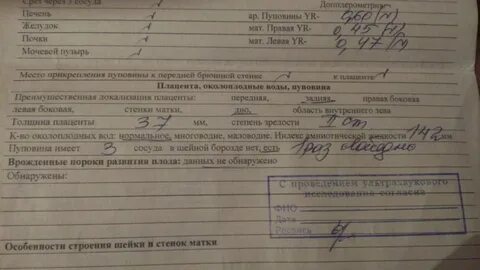 Срез через 3 сосуда
Допплерометрия:
Печень ар. Пуповины YR- 0,60 (N)
Желудок мат. Правая YR- 0,45 (N)
Почки мат. Левая YR- 0,47 (N)
Мочевой пузырь
Место прикрепления пуповины к передней брюшной стенке к плаценте
Плацента, околоплодные воды, пуповина
Преимущественная локализация плаценты: передняя, задняя, правая боковая
левая боковая, стенки матки, дно, область внутреннего зева
Толщина плаценты 37 мм степень зрелости I ст
К-во околоплодных вод: нормальное, многоводие, маловодие. Индекс амниотической жидкости 142 мм
Пуповина имеет 3 сосуда в шейной борозде нет, есть 1 раз
Врожденные пороки развития плода: данных не обнаружено
Обнаружены:
С проведением ультразвукового
исследования согласна
ФИО
Дата
Роспись
Особенности строения шейки и стенок матки